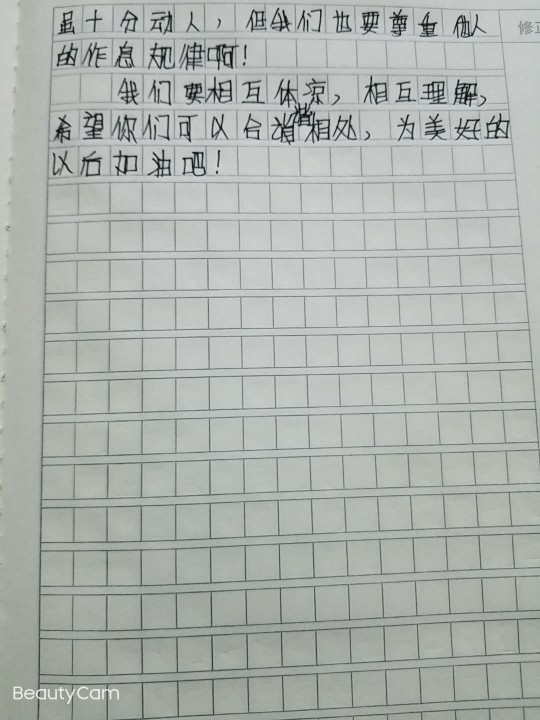 虽十分动人，但我们也要尊重他人
修正
的作息规律啊！
我们要相互体凉，相互理解，
希望你们可以合相处，为美好的
以后加油吧！
BeautyCam